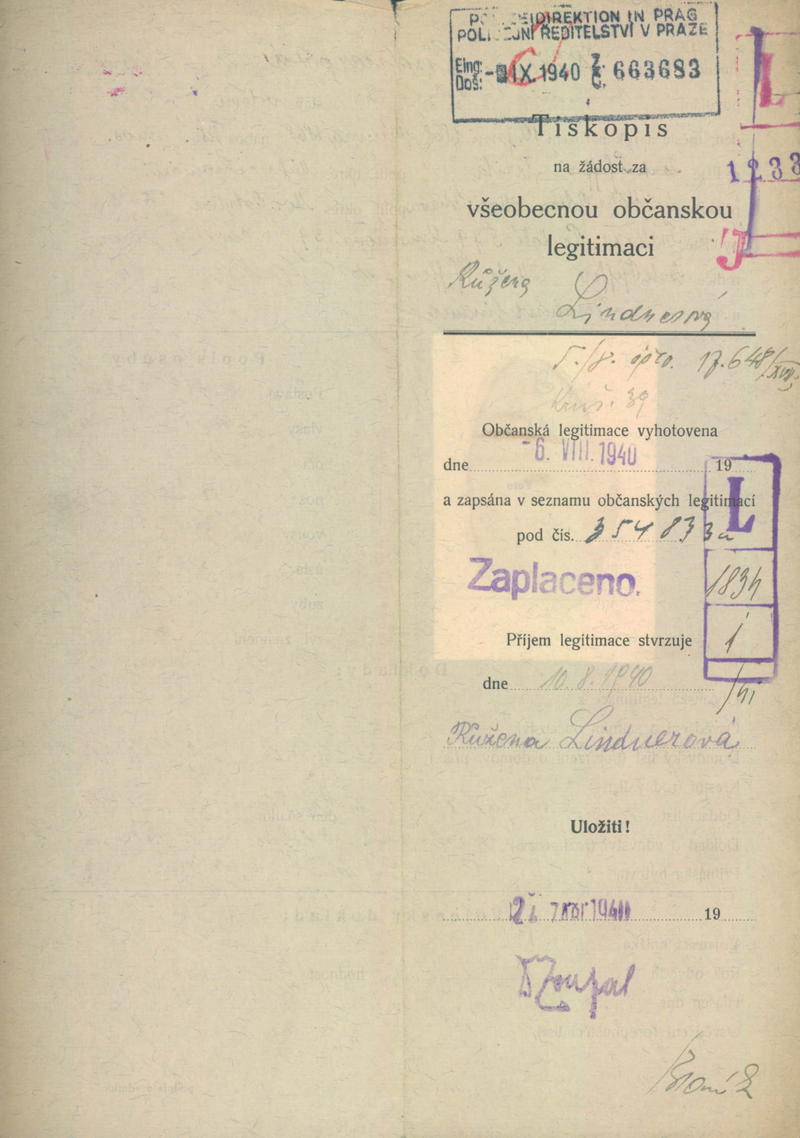 POLIZEIDIREKTION IN PRAG
POLICEJNÍ ŘEDITELSTVÍ V PRAZE
Eing:
Doš: IX. 1940 Z: 663683
L
Tiskopis
na žádost za
1233
všeobecnou občanskou
legitimaci
J
Růžena
Lindnerová
17.648/XVII
39
Občanská legitimace vyhotovena
dne -6. VIII. 1940 19
a zapsána v seznamu občanských legitimací
L
pod čís. 354833
Zaplaceno.
1834
Příjem legitimace stvrzuje
1
dne 10.8.1940
Růžena Lindnerová
Uložiti!
1940 19